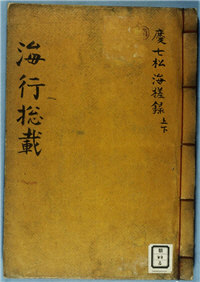 慶七松 海槎錄 上下
海行捴載